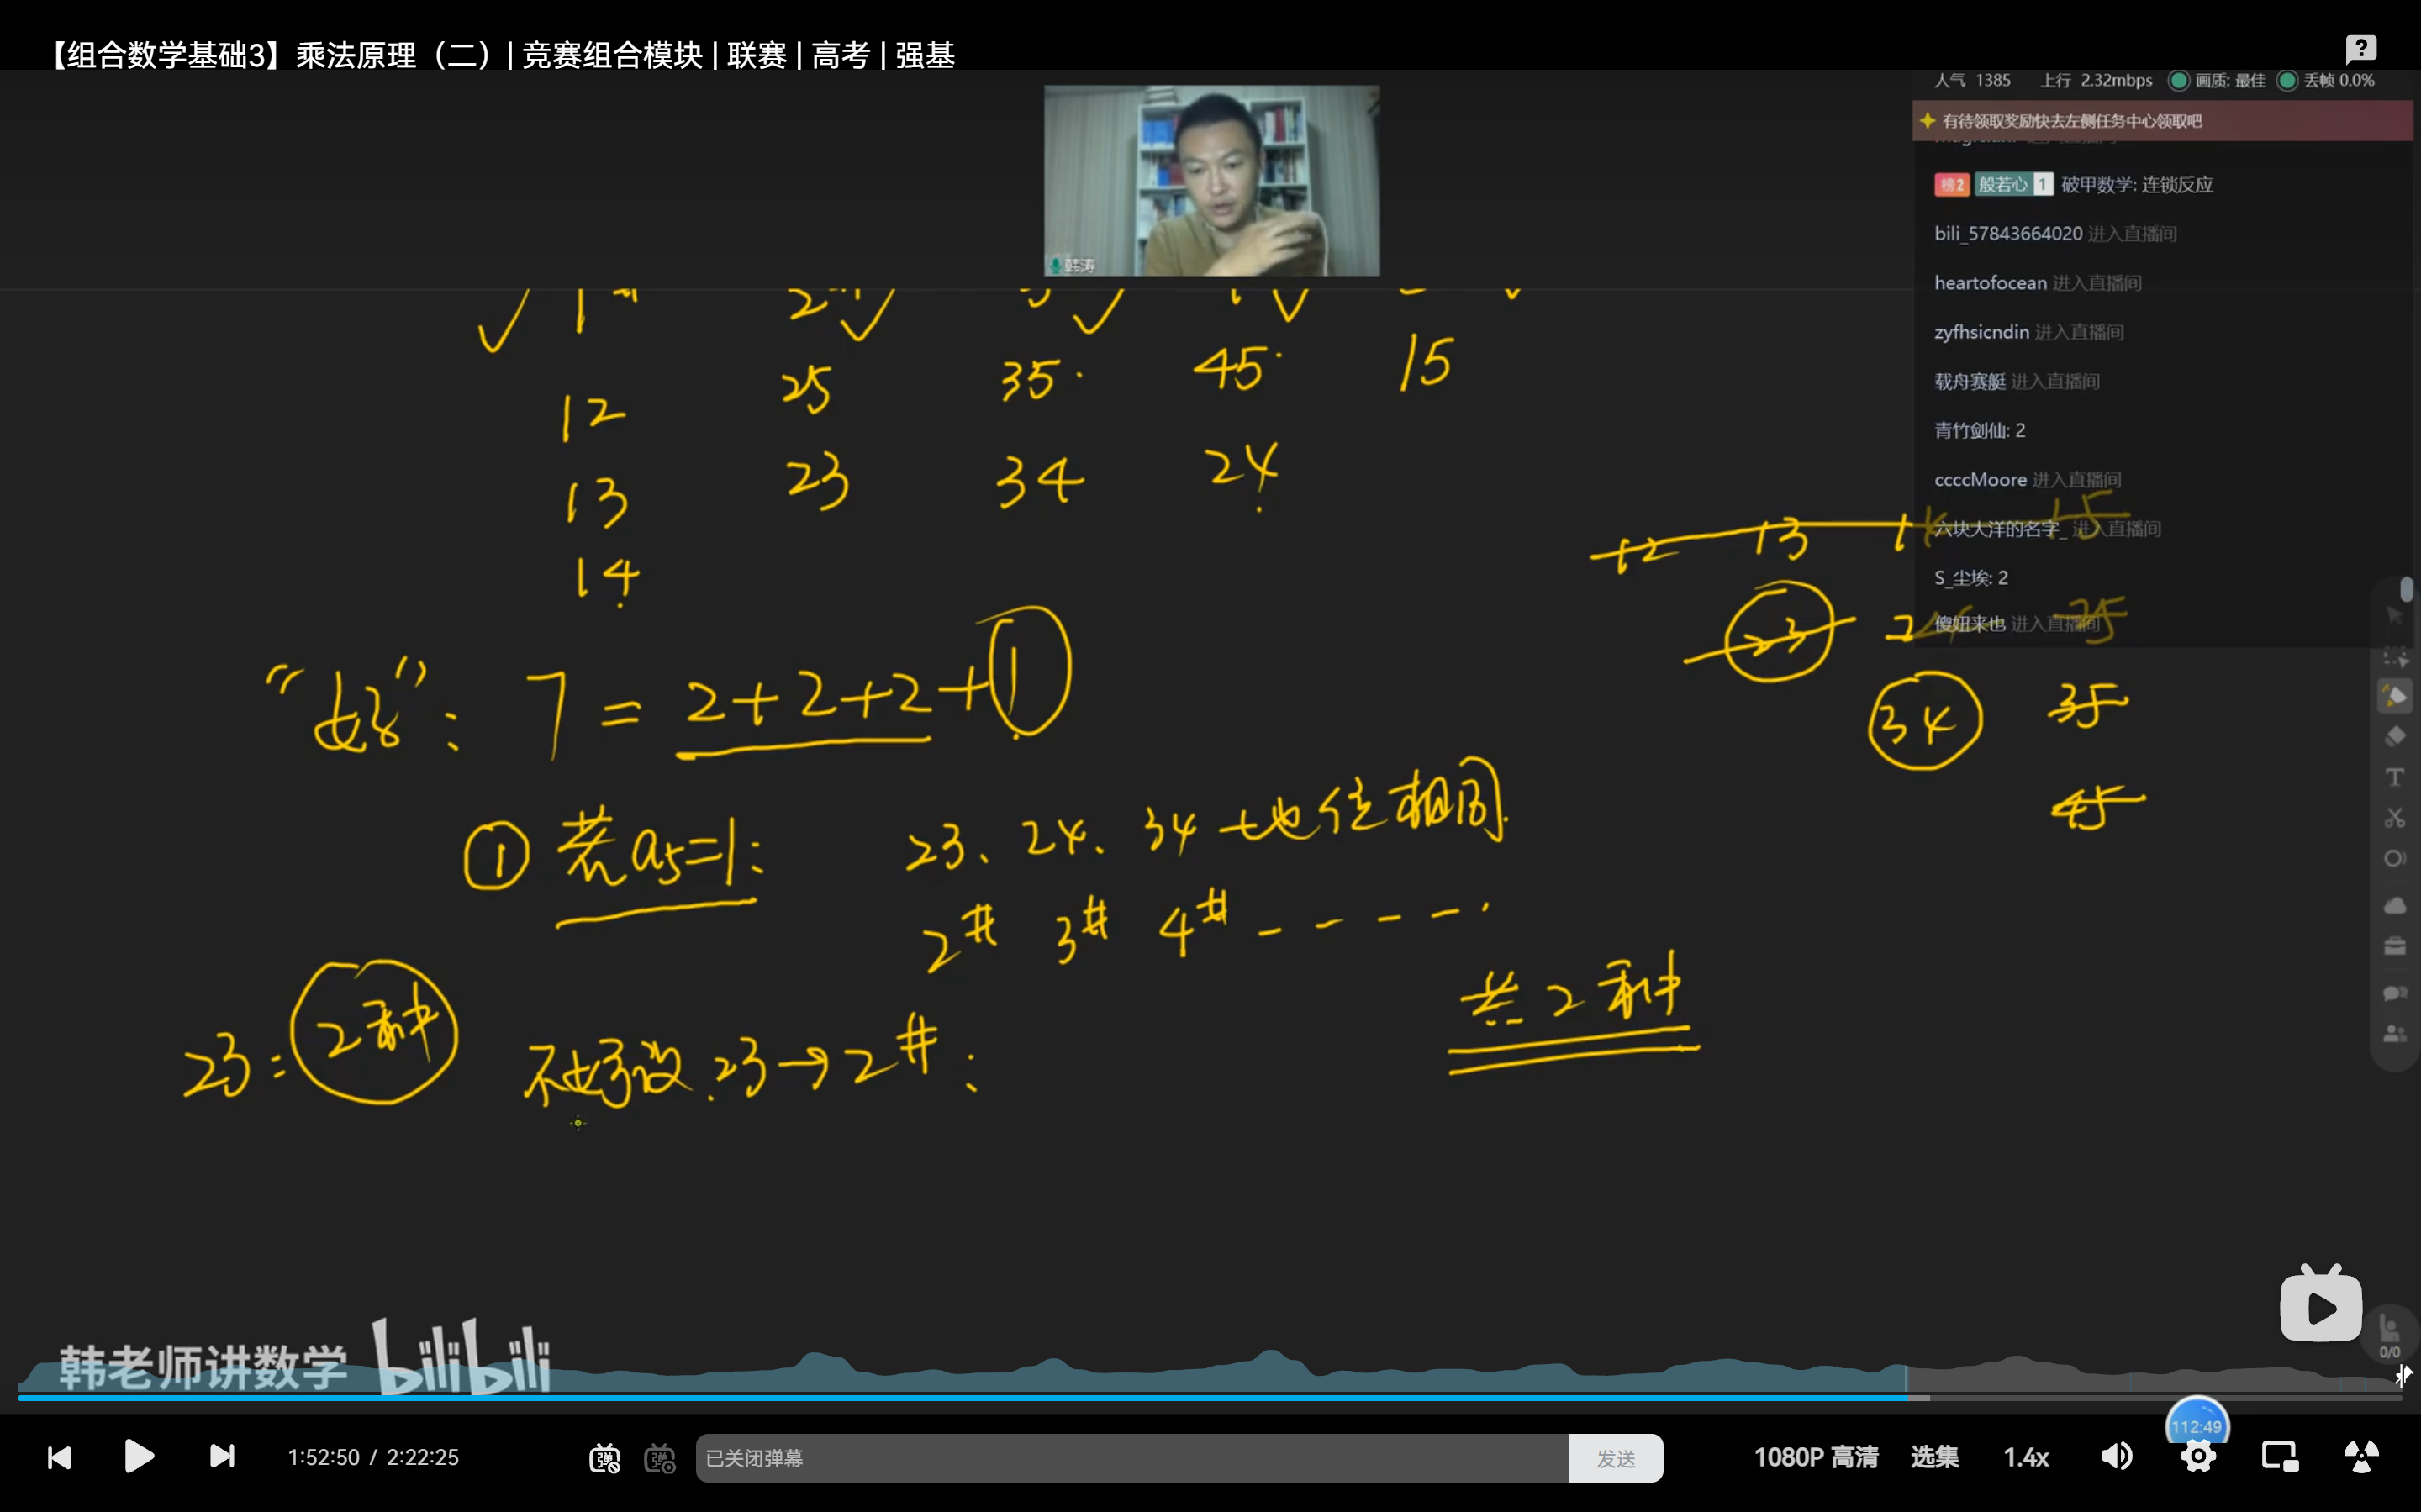 【组合数学基础3】乘法原理（二）| 竞赛组合模块 | 联赛 | 高考 | 强基
人气 1385 上行 2.32mbps 画质: 最佳 丢帧 0.0%
有待领取奖励快去左侧任务中心领取吧
榜2 般若心 1 破甲数学: 连锁反应
bili_57843664020 进入直播间
heartofocean 进入直播间
zyfhsicndin 进入直播间
载舟赛艇 进入直播间
青竹剑仙: 2
ccccMoore 进入直播间
六块大洋的名字_ 进入直播间
S_尘埃: 2
傻妞来也 进入直播间
韩涛
1# 2#
12 25 35 45 15
13 23 34 24
14
12 13 14 15
23 24 25
34 35
45
“好”: 7 = 2+2+2+1
① 若a5=1: 23、24、34地位相同.
2# 3# 4# - - - -
共2种
23: 2种 不妨设 23→2#:
韩老师讲数学 bilibili
0/0
112:49
1:52:50 / 2:22:25 弹 弹 已关闭弹幕 发送 1080P 高清 选集 1.4x